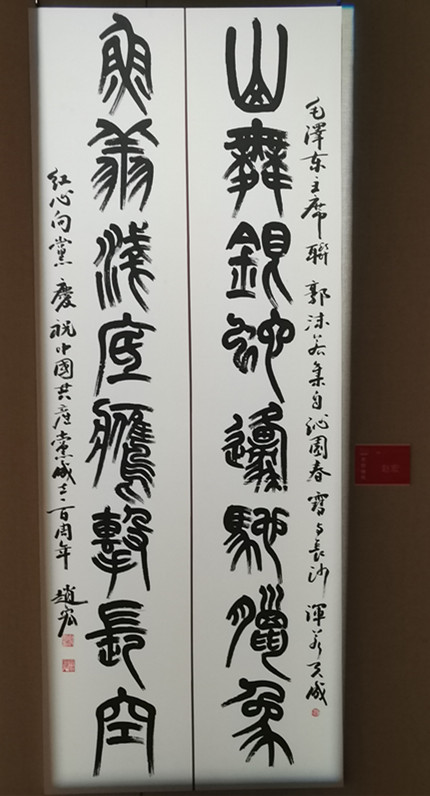 毛澤東主席聯 郭沫若集自沁園春雪与長沙 渾若天成
山舞銀蛇邍馳蠟象
魚翔淺底鷹擊長空
紅心向黨 慶祝中國共產黨成立一百周年 趙宏